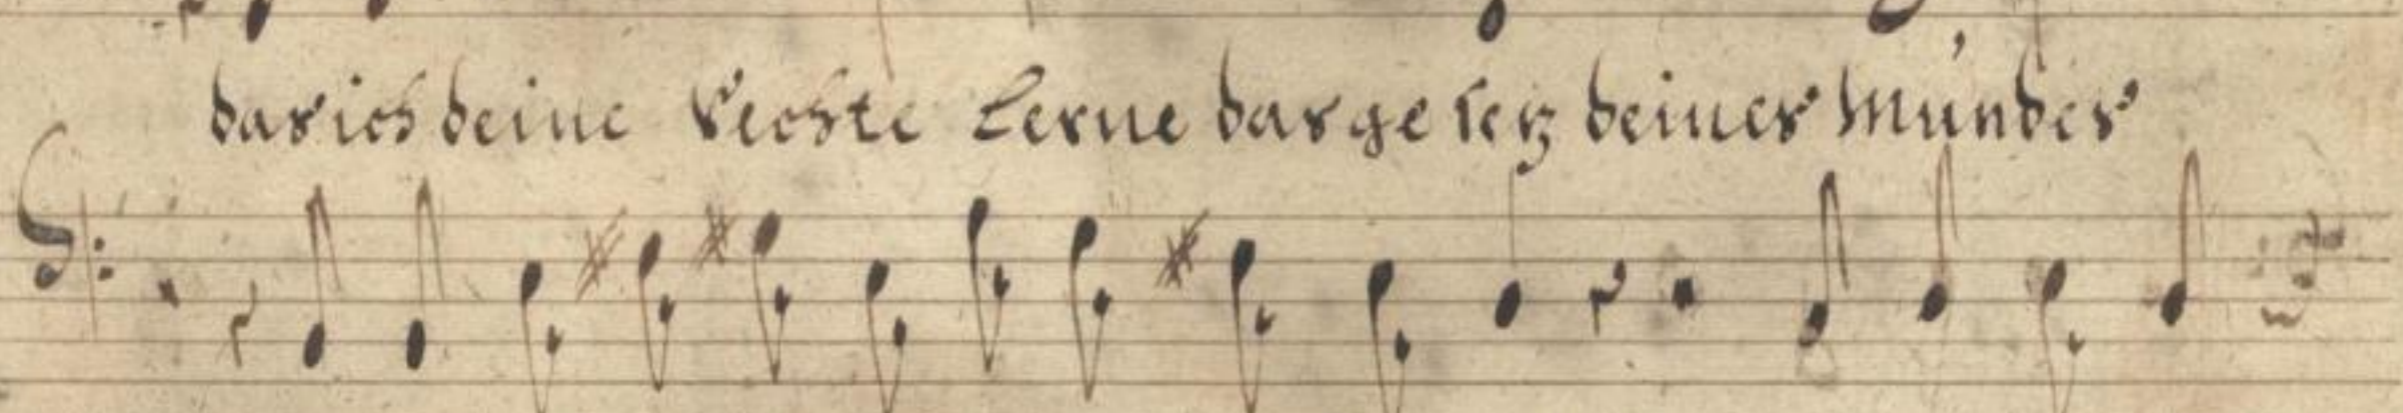 das ich deine Rechte Lerne das gesetz deines Mundes